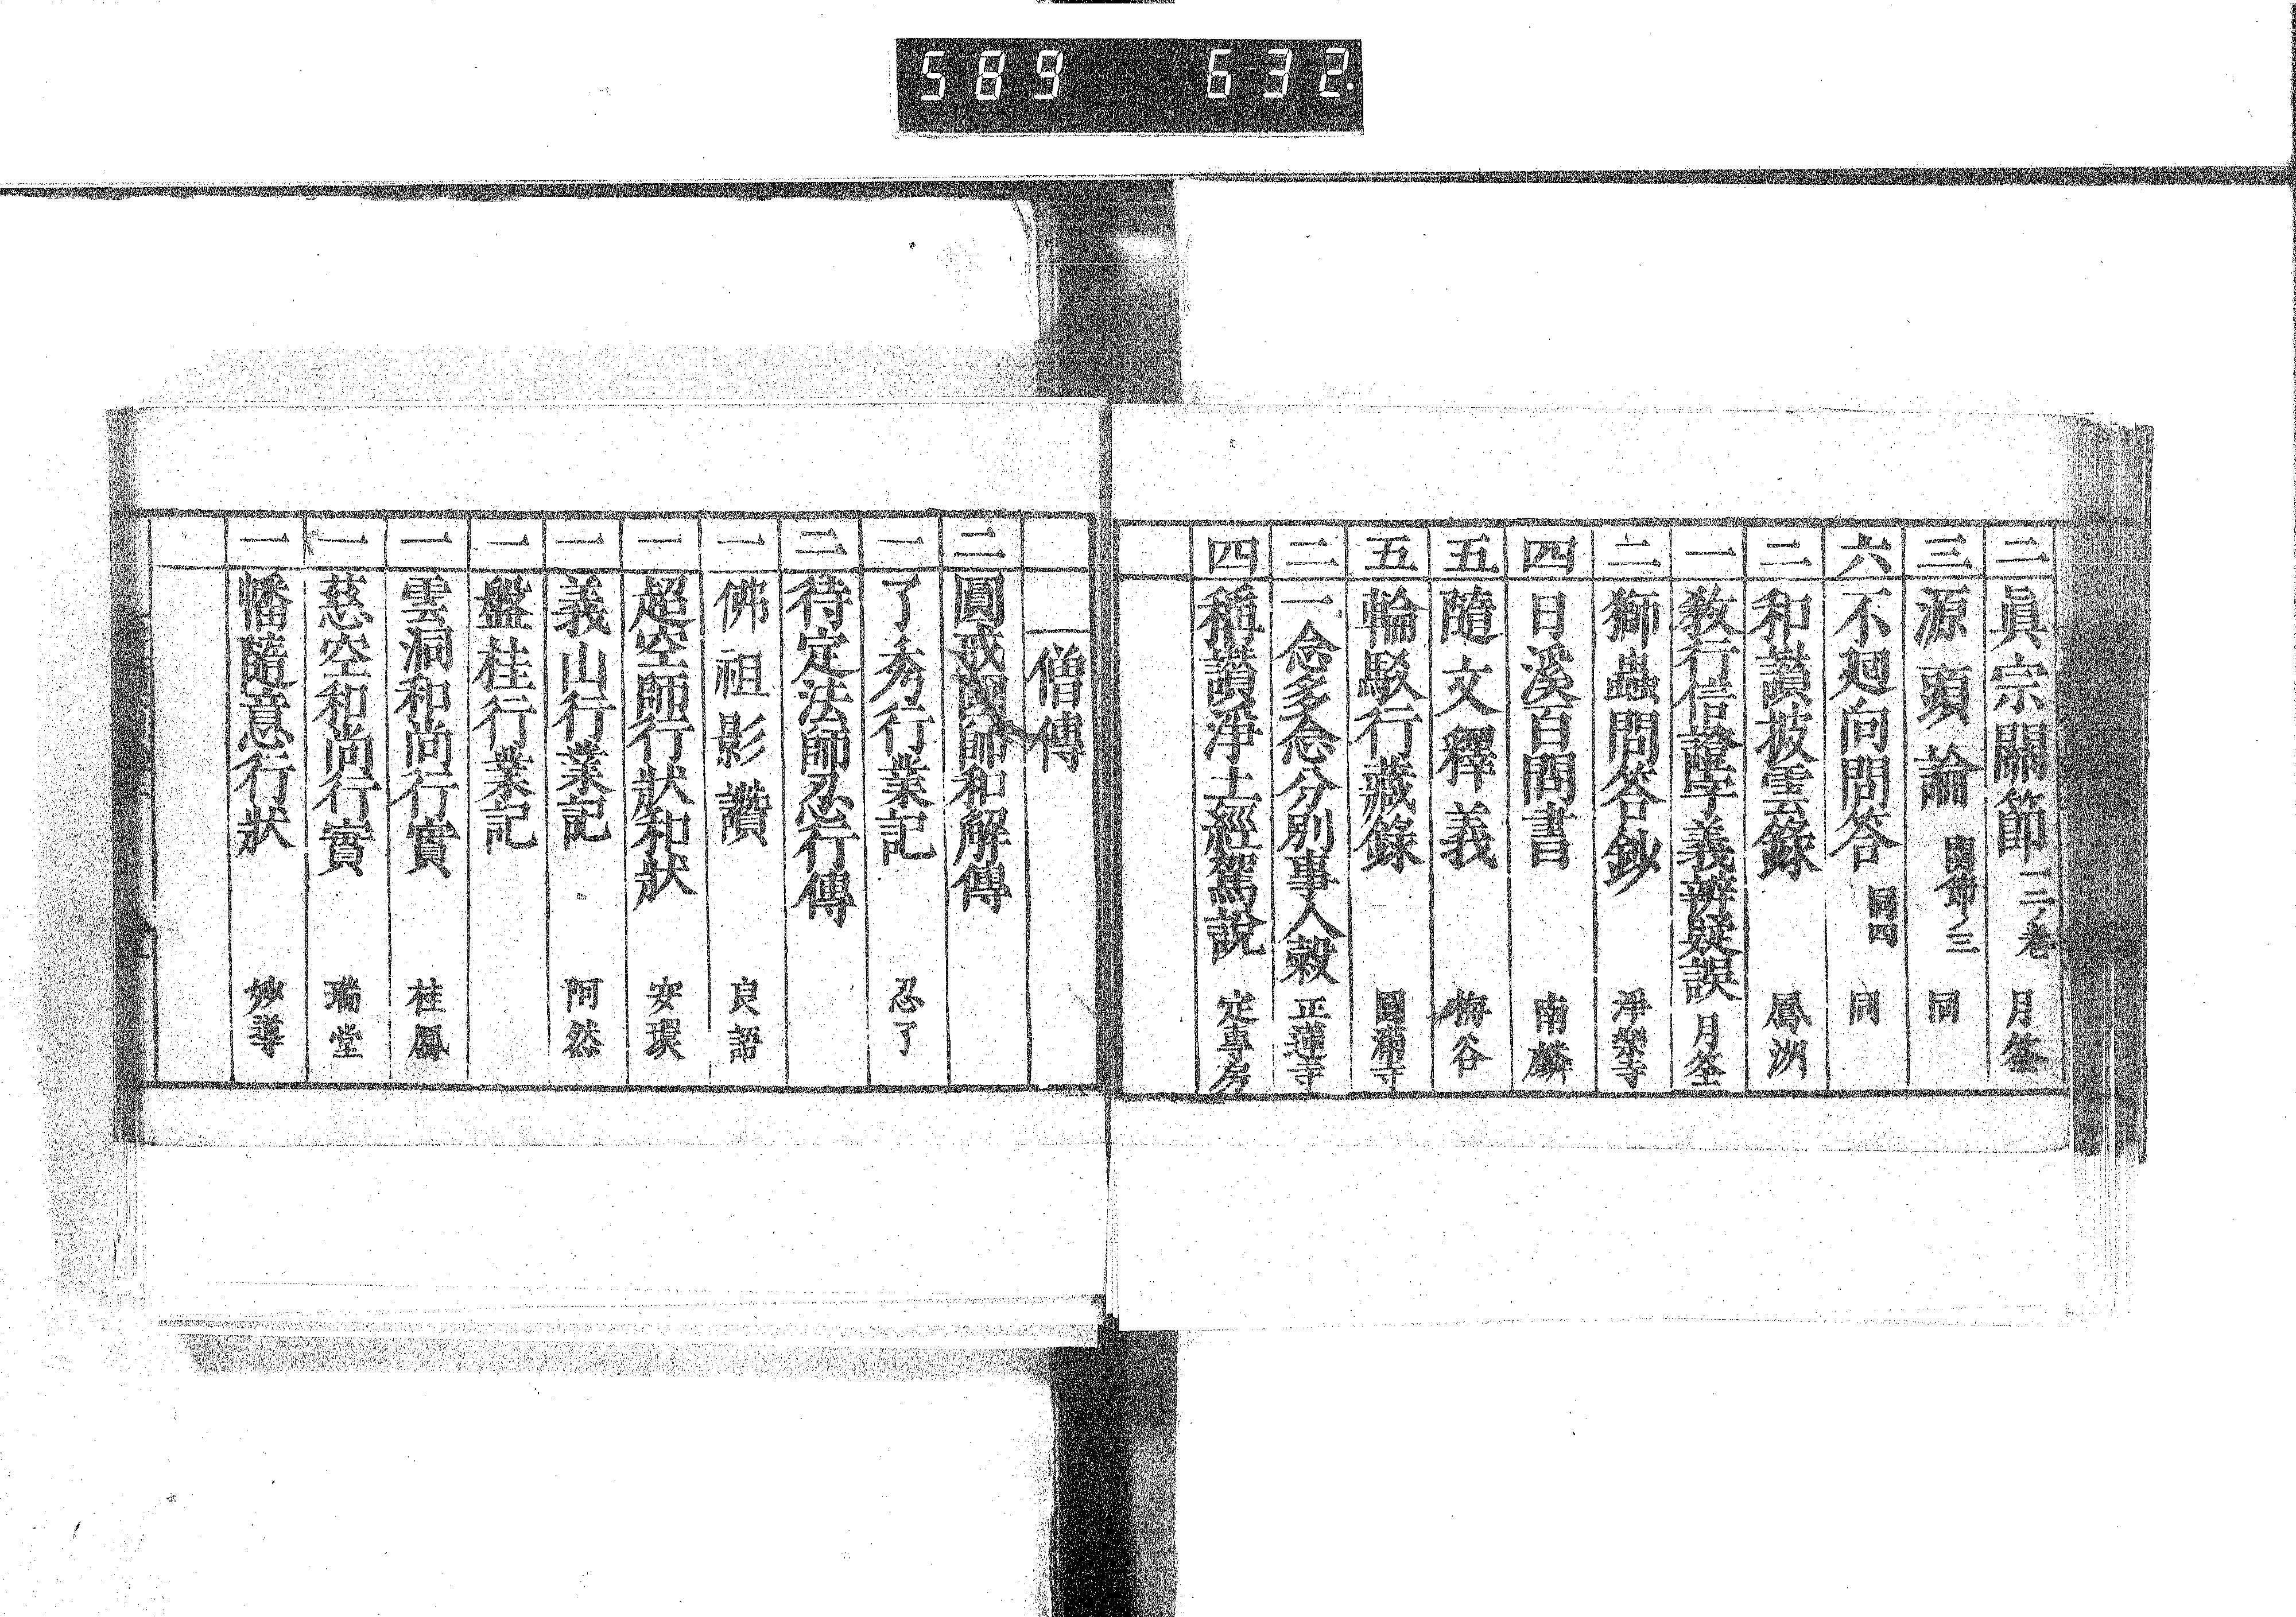 589 632.
二 眞宗關節 二ノ巻 月筌
三 源頭論 関節ノ三 同
六 不廻向問答 同四 同
二 和讃披雲錄 鳳洲
一 教行信證字義辨疑誤 月筌
二 獅蟲問答鈔 淨樂寺
四 日溪百問書 南麟
五 隨文釋義 梅谷
五 輪駁行藏錄 圓滿寺
二 一念多念分別事人彀 正蓮寺
四 稱讃淨土經駕說 定專房
僧傳
二 圓戒國師和解傳
一 了秀行業記 忍了
二 待定法師忍行傳
一 佛祖影讚 良語
一 超空師行狀和狀 安環
一 義山行業記 阿然
一 盤桂行業記
一 雲洞和尚行實 桂鳳
一 慈空和尚行實 瑞堂
一 幡隨意行狀 妙導